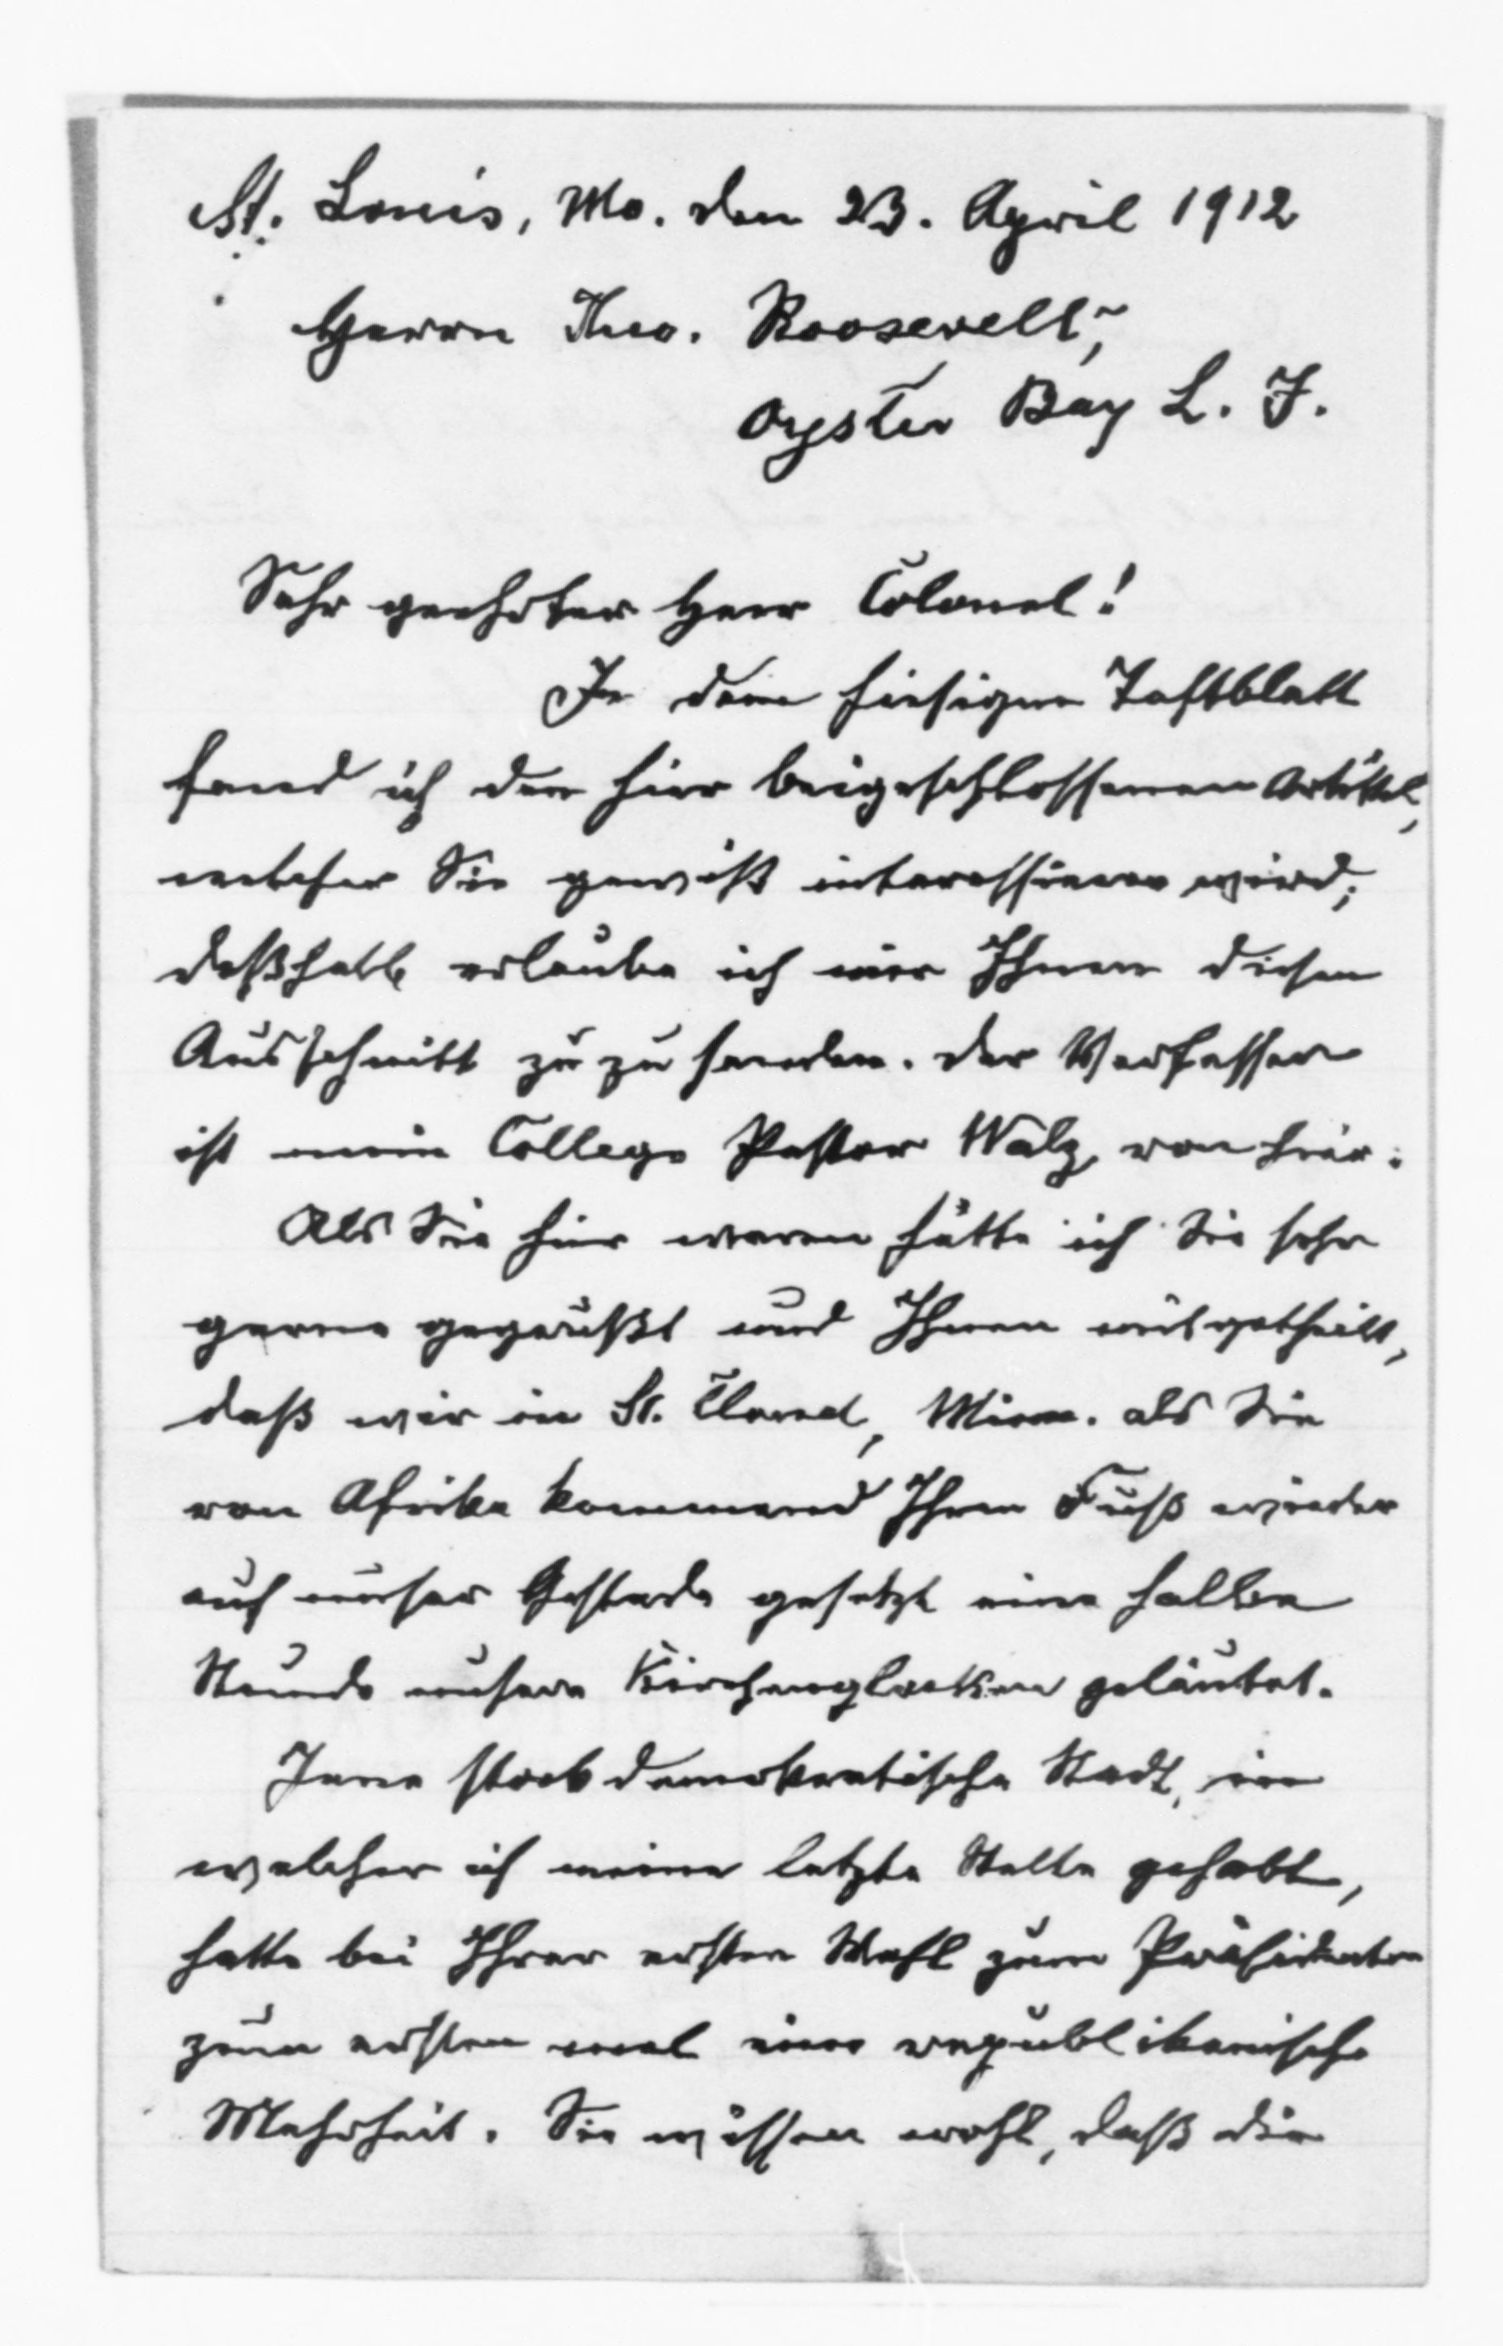 St. Louis, Mo. den 23. April 1912
Herrn Theo. Roosevelt,
Oyster Bay L. I.
Sehr geehrter Herr Colonel!
In dem hiesigen Taftblatt
fand ich den hier beigeschlossenen Artikel,
welcher Sie gewiß interessieren wird;
deßhalb erlaube ich mir Ihnen diesen
Ausschnitt zu zu senden. Der Verfasser
ist mein College Pastor Walz, von hier.
Als Sie hier waren hätte ich Sie sehr
gerne gegrüßt und Ihnen mitgetheilt,
daß wir in St. Cloud, Minn. als Sie
von Afrika kommend Ihren Fuß wieder
auf unser Gestade gesetzt eine halbe
Stunde unsere Kirchenglocken geläutet.
Jene stockdemokratische Stadt, in
welcher ich meine letzte Stelle gehabt,
hatte bei Ihrer ersten Wahl zum Präsidenten
zum ersten mal eine republikanische
Mehrheit. Sie wissen wohl, daß die